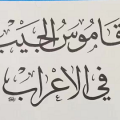 قاموس الجيب
في الإعراب